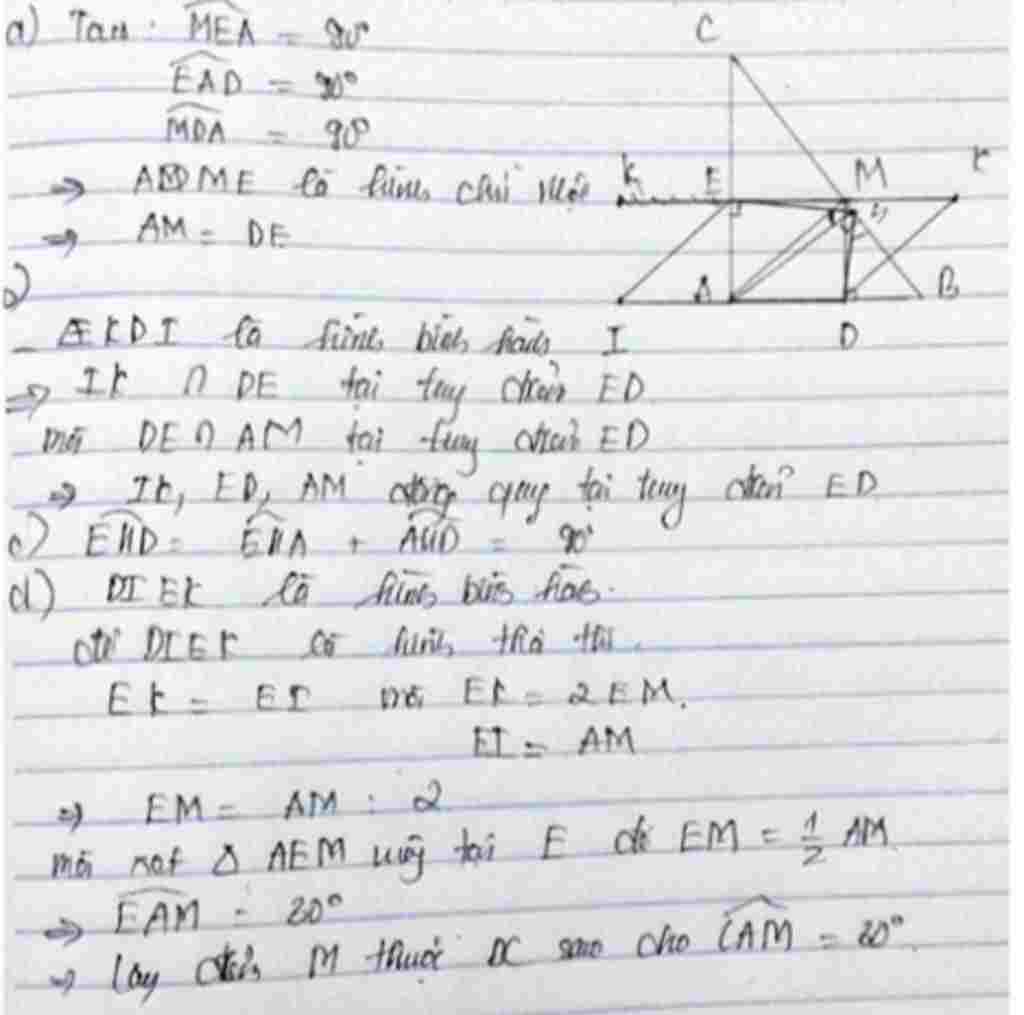 a) Tacó: MEA = 90°
EAD = 90°
MDA = 90°
⇒ ADME là hình chữ nhật
⇒ AM = DE
b)
- EKDI là hình bình hành
⇒ IK ∩ DE tại trung điểm ED
mà DE ∩ AM tại trung điểm ED
⇒ IK, ED, AM đồng quy tại trung điểm ED
c) EHD = EHA + AHD = 90°
d) DIEK là hình bình hành.
để DIEK là hình thoi thì.
EK = EI mà EK = 2EM.
EI = AM
⇒ EM = AM : 2
mà xét Δ AEM vuông tại E để EM = 1/2 AM
⇒ EAM = 30°
⇒ Lấy điểm M thuộc BC sao cho CAM = 30°.
C
K E M K
H
I A D B